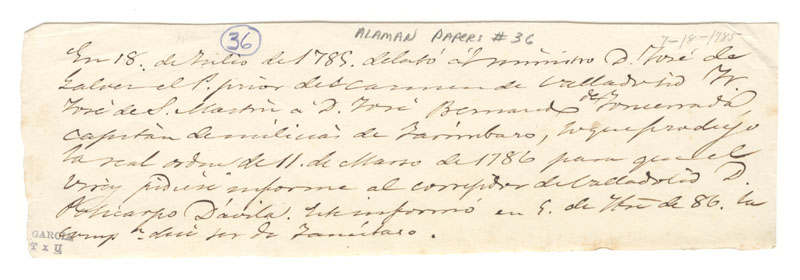 36
ALAMAN PAPERS # 36
7-18-1785
En 18. de Julio de 1785. delató al ministro D. José de
Galvez el P. prior del Carmen de Valladolid Fr.
José de S. Martin á D. José Bernardo de Foncerrada,
capitan de milicias de Tarimbaro, lo que produjo
la real orden de 11. de Marzo de 1786 para que el
virey pidiese informe al corregidor de Valladolid D.
Policarpo Dávila. Este informó en 5. de de 86. la
ser de Tarimbaro.
GARCIA
T x U